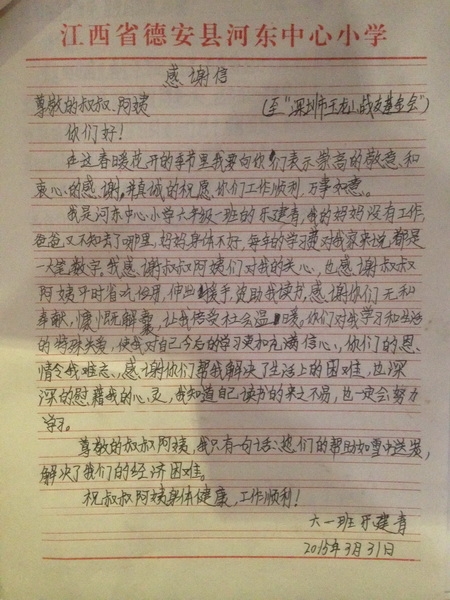 江西省德安县河东中心小学
感谢信
尊敬的叔叔、阿姨 (至"深圳市王龙山战友基金会")
你们好!
在这春暖花开的季节里我要向你们表示崇高的敬意和
衷心的感谢,并真诚的祝愿你们工作顺利,万事如意。
我是河东中心小学六年级一班的乐建青,我的妈妈没有工作,
爸爸又不知去了哪里,妈妈身体不好,每年的学习费对我家来说,都是
一大笔数字,我感谢叔叔阿姨们对我的关心,也感谢叔叔
阿姨平时省吃俭用,伸出援手,资助我读书,感谢你们无私
奉献,慷慨解囊,让我倍受社会温暖。你们对我学习和生活
的特殊关爱,使我对自己今后的学习更加充满信心,你们的恩
情令我难忘,感谢你们帮我解决了生活上的困难,也深
深的慰藉我的心灵,我知道自己读书的来之不易,也一定会努力
学习。
尊敬的叔叔阿姨,我只有一句话:您们的帮助如雪中送炭,
解决了我们的经济困难。
祝叔叔阿姨身体健康,工作顺利!
六一班 乐建青
2015年3月31日